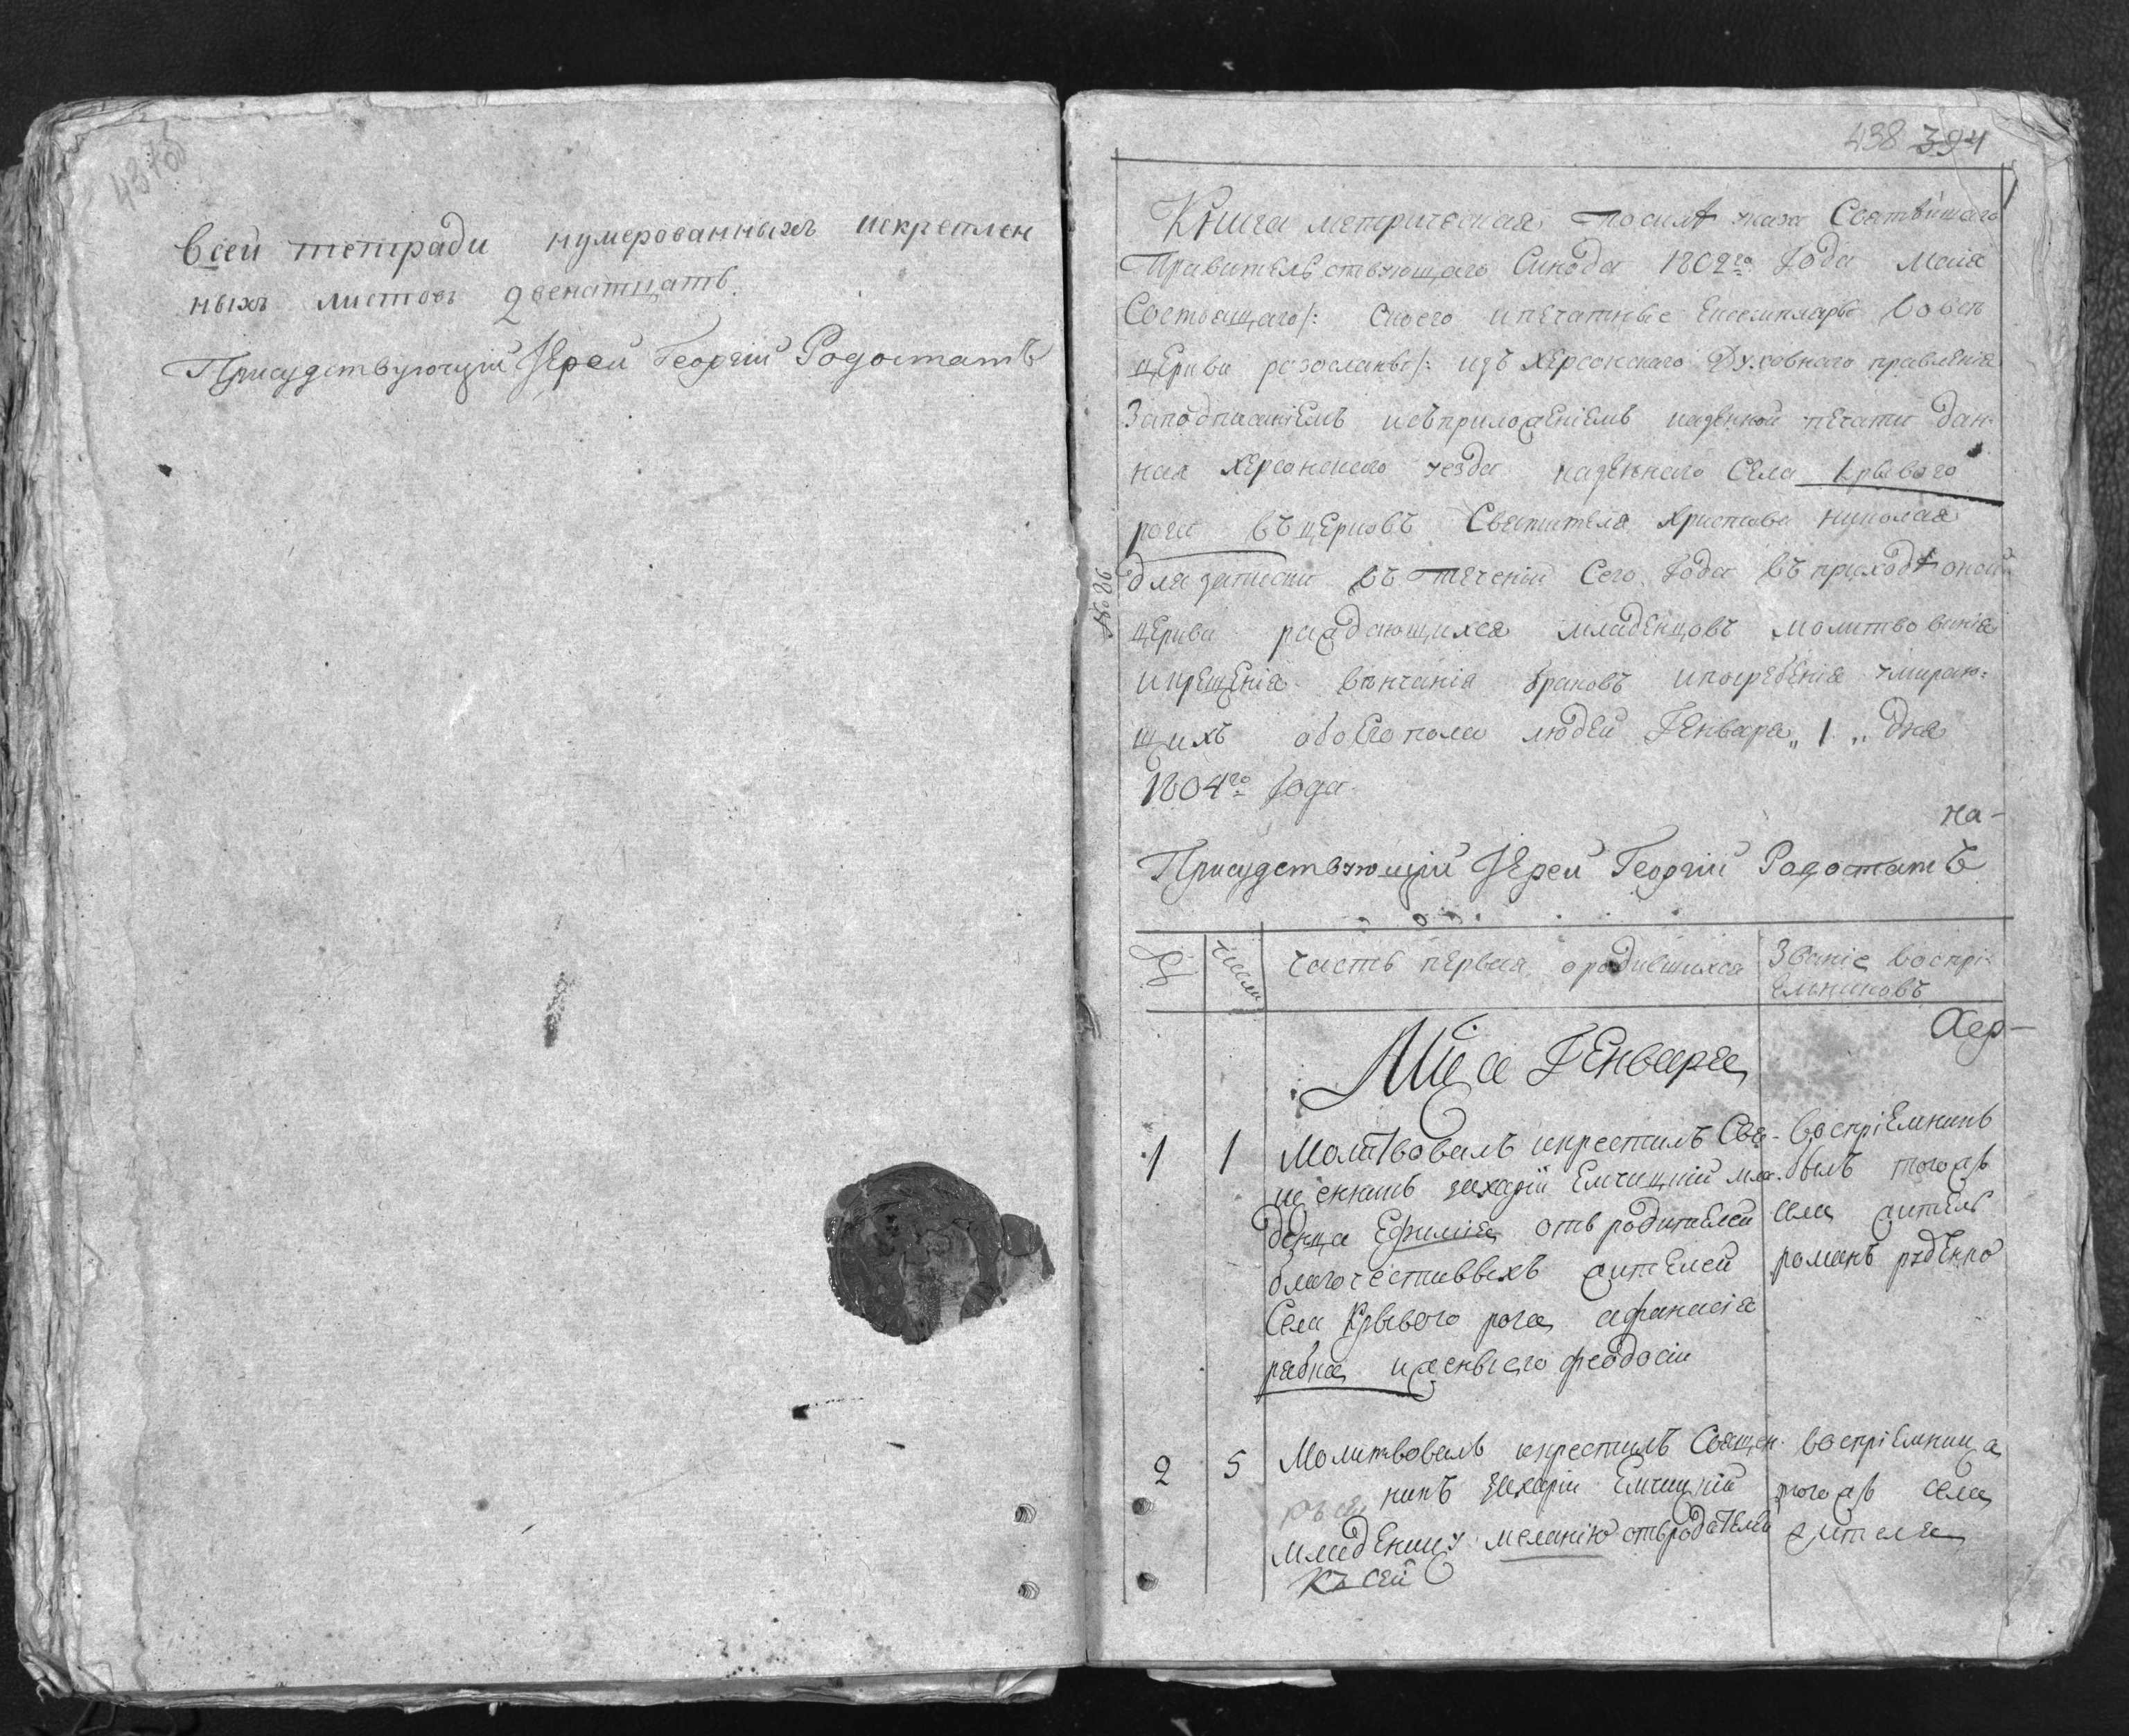 437об
всей тетради нумерованныхъ искреплен
ныхъ листовъ двенатцать
Присудствующій Іерей Георгій Родостатъ
438 394
1
Книга метрическая посилѣ указа Святѣйшаго
Правительствующаго Синода 1802го Года Маія
Состоящаго/: съкоего ипечатные екземпляры вовсѣ
церкви розосланы/: изъ херсонскаго Духовнаго правленія
Заподписаніемъ исъприложеніемъ казенной печати дан-
ная херсонскаго уезда казеннаго Села крывого
рога въ церковъ Святителя христова николая
для записки въ теченіи Сего Года въ приходѣ оной
церкви раждающихся младенцовъ молитвованія
икрещенія венчанія браковъ ипогребенія умираю=
щихъ обоего пола людей Генваря „ 1 „ дня
1804го Года
на-
Присудствующій Іерей Георгій Родостатъ
№ 26
числа
Часть первая ородившихся
Званіе воспрі=
емниковъ
Хер-
Мца Генваря
1 1 Молитвовалъ икрестилъ Свя-
щенникъ захарій Емчицкій мла-
денца Ефимія отъ родителей
благочестиввыхъ жителей
Села Крывого рога афанасія
рябка ижены его феодосіи
воспріемникъ
былъ того жъ
села житель
романъ руденко
2 5 Молитвовалъ икрестилъ Священ-
никъ захарій Емчицкій
младеницу меланію отъ родителей
воспріемница
того жъ села
жителя
къ сей